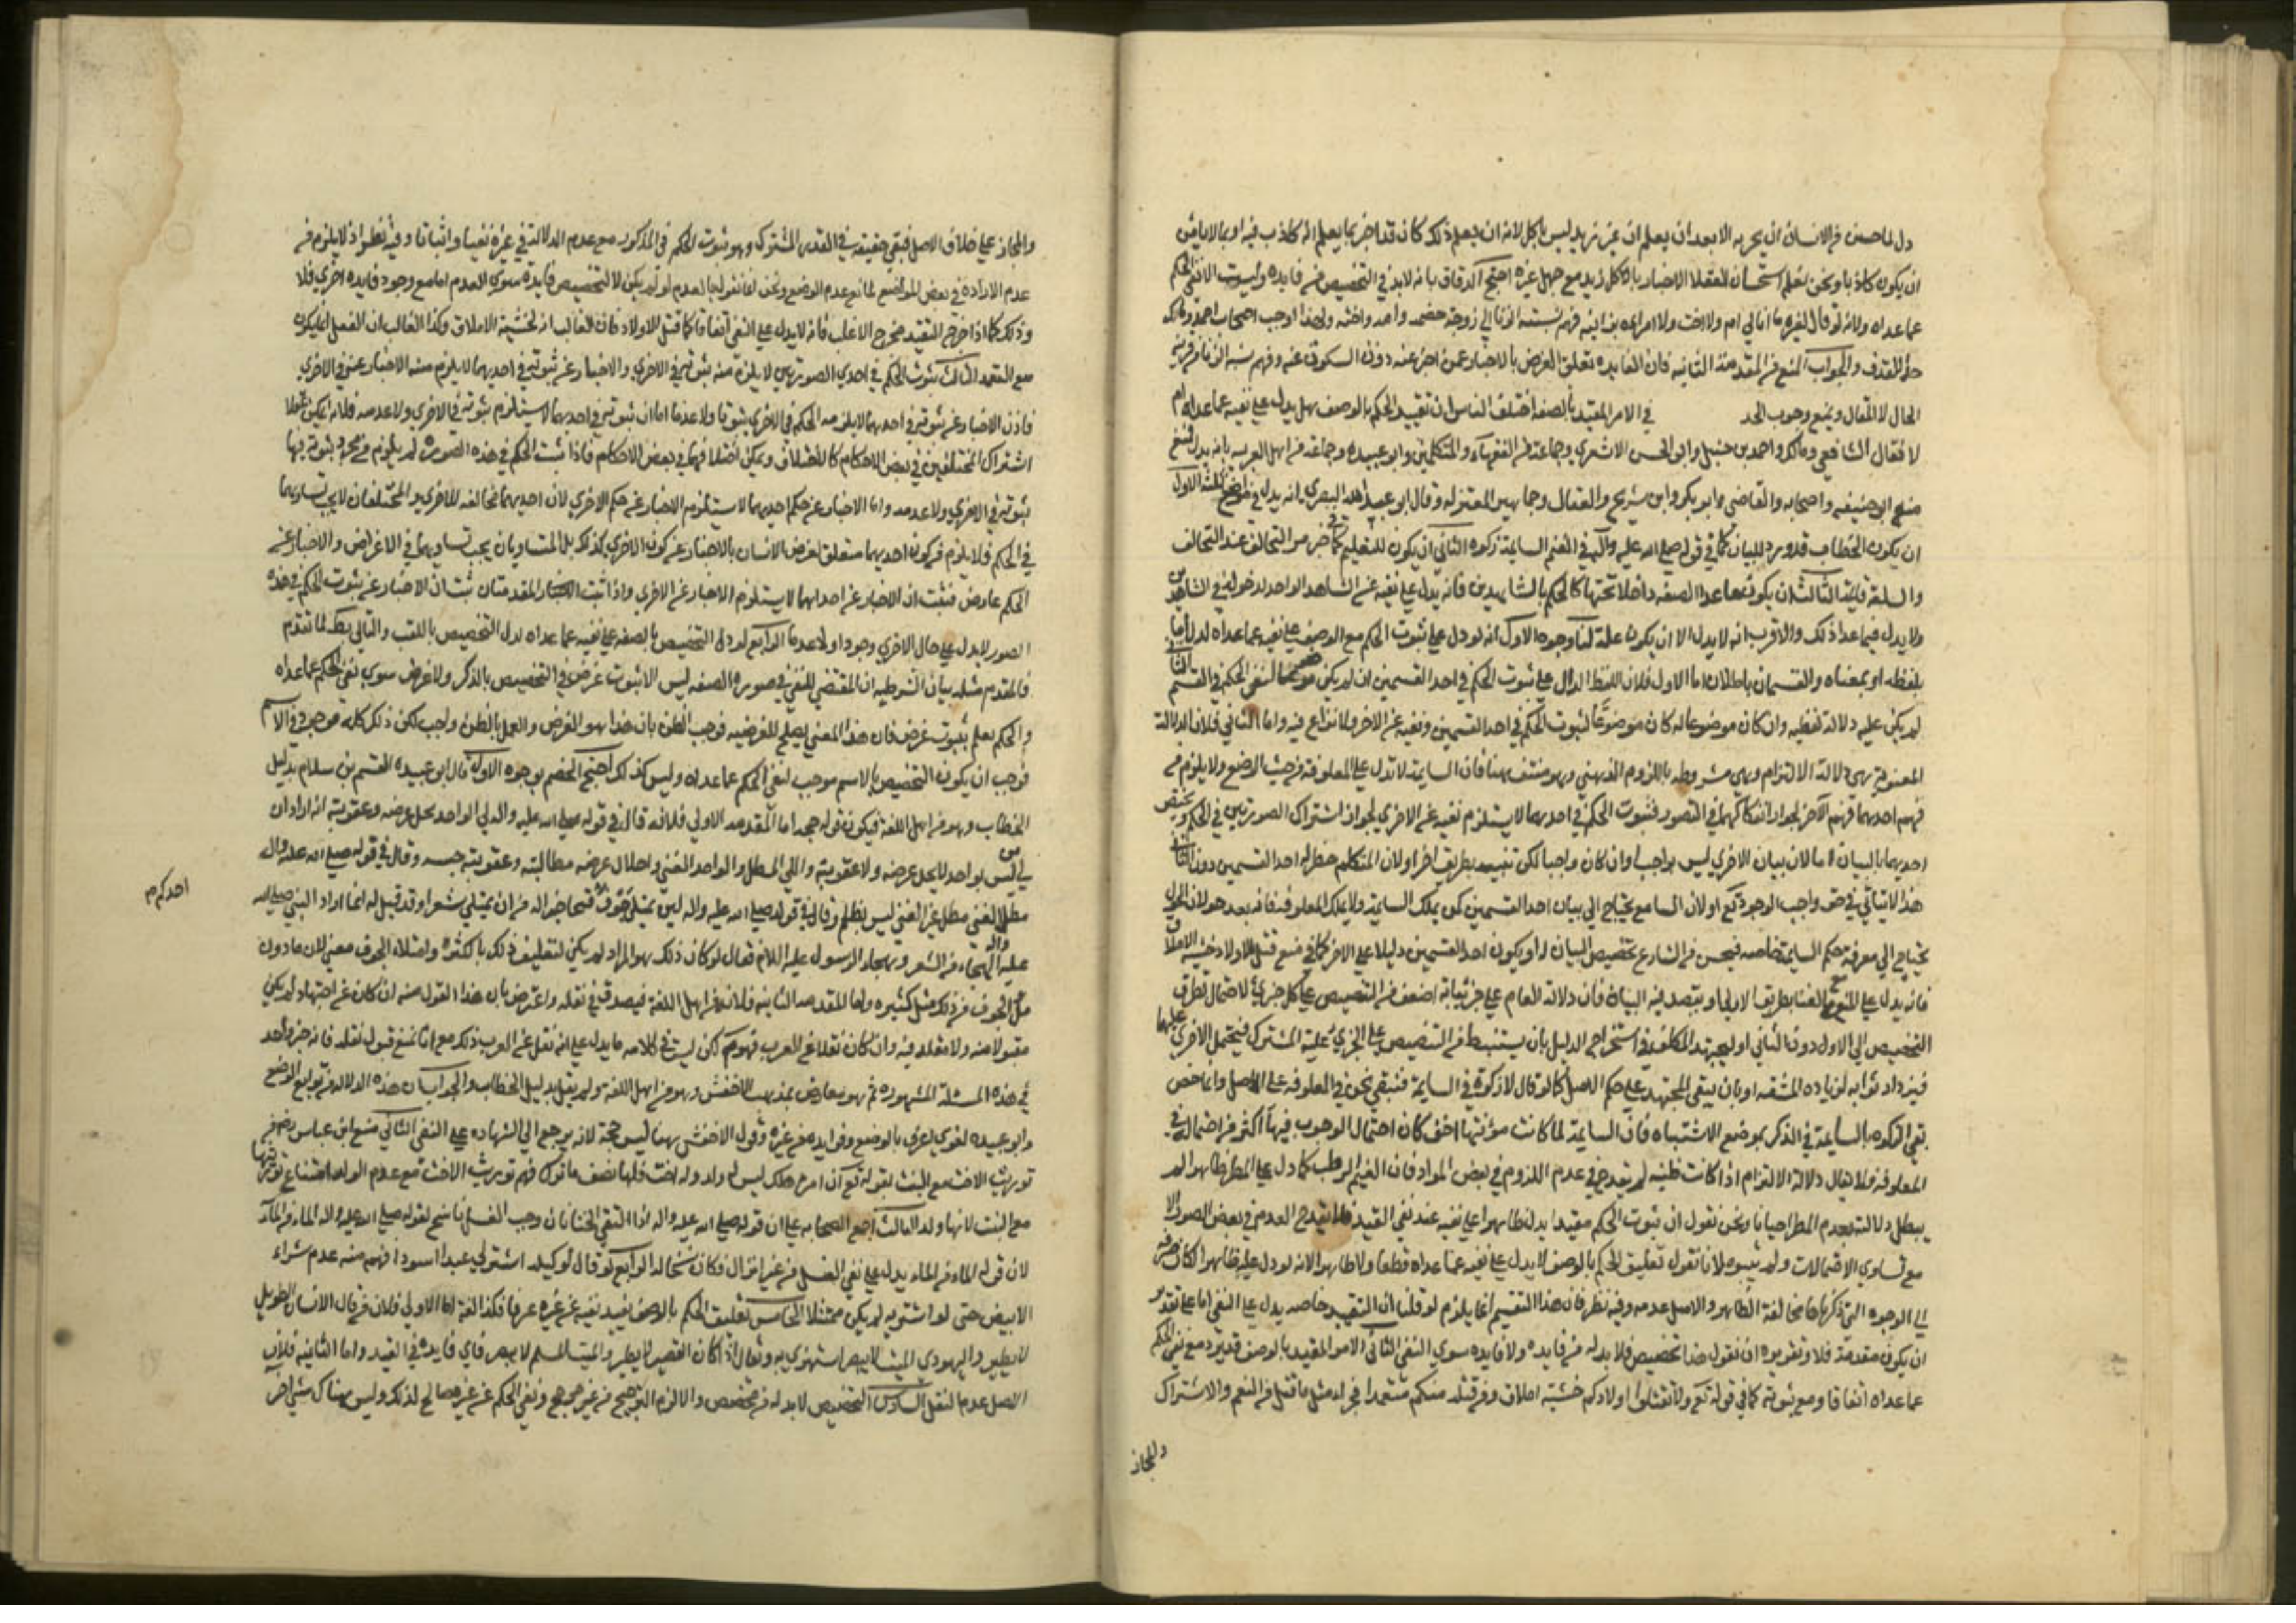 دل لما حسن من الانسان ان يخبر به الا بعد ان يعلم ان غير زيد ليس باكل لانه ان لم يعلم ذلك كان قد اخبر بما يعلم انه كاذب فيه او بما لا يامن
ان يكون كاذبا ونحن نعلم استحسان العقلا الاخبار باكل زيد مع جهل غيره احتج الدقاق بانه لابد في التخصيص من فايدة وليست الا نفي الحكم
عما عداه ولانه لو قال لغيره ما انا لي ام ولا اخت ولا امراة بزانيه فهم نسبته الزنا الي زوجة خصمه وامه واخته ولهذا اوجب اصحاب احمد ومالك
حد القذف والجواب المنع من المقدمة الثانيه فان الفايده تعلق الغرض بالاخبار عمن اخبر عنه دون السكوت عنه وفهم نسبة الزنا من قرينة
الحال لا المقال ويمنع وجوب الحد في الامر المقيد بالصفه اختلف الناس ان تقييد الحكم بالوصف هل يدل علي نفيه عما عداه ام
لا فقال الشافعي ومالك واحمد بن حنبل وابو الحسن الاشعري وجماعة من الفقهاء والمتكلمين وابو عبيده وجماعة من اهل العربيه بانه يدل فمنع
منه ابو حنيفه واصحابه والقاضي ابو بكر وابن سريج والقفال وجماهير المعتزله وقال ابو عبد الله البصري انه يدل في مواضع ثلثة الاول
ان يكون الخطاب قد ورد للبيان كما في قوله صلي الله عليه وآله في الغنم السايمة زكوة الثاني ان يكون للتعليم كما في خبر التحالف عند التحالف
والسلعة قايمة الثالث ان يكون ما عدا الصفه داخلا تحتها كالحكم بالشاهدين فانه يدل علي نفيه عن الشاهد الواحد لدخوله في الشاهدين
ولا يدل فيما عدا ذلك والاقرب انه لا يدل الا ان يكون علة لنا وجوه الاول انه لو دل علي ثبوت الحكم مع الوصف علي نفيه عما عداه لدل اما
بلفظه او بمعناه والقسمان باطلان اما الاول فلان اللفظ الدال علي ثبوت الحكم في احد القسمين ان لم يكن موضوعا لنفي الحكم في القسم الثاني
لم يكن عليه دلالة لفظيه وان كان موضوعا له كان موضوعا لثبوت الحكم في احد القسمين ونفيه عن الاخر ولا نزاع فيه واما الثاني فلان الدلالة
المعنوية هي دلالة الالتزام وهي مشروطه باللزوم الذهني وهو منتف هنا فان السايمة لا تدل علي المعلوفة من حيث الوضع ولا يلزم من
فهم احدهما فهم الآخر لجواز انفكاكهما في التصور فثبوت الحكم في احدهما لا يستلزم نفيه عن الاخري لجواز اشتراك الصورتين في الحكم ويختص
احدهما بالبيان اما لان بيان الاخري ليس بواجب او ان كان واجبا لكن بينه بطريق اخر او لان المتكلم خطر له احد القسمين دون الثاني
هذا لا يتاتي في حق واجب الوجود تع او لان السامع يحتاج الي بيان احد القسمين كمن يملك السايمة ولا يملك المعلوفة فانه بعد حولان الحول
يحتاج الي معرفة حكم السايمة خاصه فيحسن من الشارع تخصيص البيان او يكون احد القسمين دليلا علي الاخر كما في منع قتل الاولاد خشية الاملاق
فانه يدل علي المنع مع الغنا بطريق الاولي او بتصديه البيان فان دلالة العام علي جزئياته اضعف من التنصيص علي كل جزئي لاحتمال تطرق
التخصيص الي الاول دون الثاني او ليجتهد المكلف في استخراج الدليل بان يستنبط من التنصيص علي الجزئي علية المشترك فيحمل الاخري عليها
فيزداد ثوابه لزيادة المشقه او بان يبقي المجتهد علي حكم الاصل كما لو قال لا زكوة في السايمة فنبقي نحن في المعلوفه علي الاصل وانما خص
نفي الزكوه بالسايمة في الذكر بموضع الاشتباه فان السايمة لما كانت مؤنتها اخف كان احتمال الوجوب فيها اكثر من احتماله في
المعلوفة ولا يقال دلالة الالتزام اذا كانت ظنيه لم يقدح في عدم اللزوم في بعض المواد فان الغيم الرطب كما دل علي المطر ظاهرا لم
يبطل دلالته بعدم المطر احيانا ونحن نقول ان ثبوت الحكم مقيدا يدل ظاهرا علي نفيه عند نفي القيد فلا يقدح العدم في بعض الصور الا
مع تساوي الاحتمالات ولم يثبتوه لانا نقول تعليق الحكم بالوصف لا يدل علي نفيه عما عداه قطعا ولا ظاهرا لانه لو دل عليه ظاهرا لكان صرفه
الي الوجوه التي ذكرناها مخالفة الظاهر والاصل عدمه وفيه نظر فان هذا التقسيم انما يلزم لو قلنا ان التقييد خاصه يدل علي النفي اما علي تقدير
ان يكون مقدمة فلا وتقريره ان نقول هذا تخصيص فلا بد له من فايده ولا فايده سوي النفي الثاني الامر المقيد بالوصف قد يرد مع نفي الحكم
عما عداه اتفاقا ومع ثبوته كما في قوله تع ولا تقتلوا اولادكم خشية املاق ومن قتله منكم متعمدا فجزاء مثل ما قتل من النعم والاشتراك
والمجاز
والمجاز علي خلاف الاصل فبقي حقيقة في القدر المشترك وهو ثبوت الحكم في المذكور مع عدم الدلالة في غيره نفيا واثباتا وفيه نظر اذ لا يلزم من
عدم الارادة في بعض المواضع لمانع عدم الوضع ونحن انما نقول بالعدم لو لم يكن للتخصيص فايدة سوي العدم اما مع وجود فايده اخري فلا
وذلك كما اذا خرج التقييد مخرج الاغلب فانه لا يدل علي النفي اتفاقا كما قتل الاولاد فان الغالب انه لخشية الاملاق وكذا الغالب ان الفعل انما يكون
مع التعمد الثالث ثبوت الحكم في احدي الصورتين لا يلزم منه ثبوته في الاخري والاخبار عن ثبوته في احديهما لا يلزم منه الاخبار عنه في الاخري
فاذن الاخبار عن ثبوته في احديهما لا يلزمه الحكم في الاخري ثبوتا ولا عدما اما ان ثبوته في احديهما لا يستلزم ثبوته في الاخري ولا عدمه فلانه يمكن عقلا
اشتراك المختلفين في بعض الاحكام كالاختلاف ويمكن اختلافهما في بعض الاحكام فاذا ثبت الحكم في هذه الصورة لم يلزم من مجرد ثبوته فيها
ثبوته في الاخري ولا عدمه واما الاخبار عن حكم احديهما لا يستلزم الاخبار عن حكم الاخري لان احديهما مخالفه للاخري والمختلفان لا يجب تساويهما
في الحكم فلا يلزم من كون احديهما متعلق لغرض الانسان بالاخبار عن كون الاخري كذلك بل المتساويان يجب تساويهما في الاغراض والاخبار عن
الحكم عارض فثبت ان الاخبار عن احداهما لا يستلزم الاخبار عن الاخري واذا ثبت المقدمتان ثبت ان الاخبار عن ثبوت الحكم في هذه
الصور لا يدل علي حال الاخري وجودا ولا عدما الرابع لو دل التخصيص بالصفه علي نفيه عما عداه لدل التخصيص باللقب والتالي بط لما تقدم
فالمقدم مثله بيان الشرطيه ان المقتضي للنفي في صورة الصفه ليس الا ثبوت غرض في التخصيص بالذكر ولا غرض سوي نفي الحكم عما عداه
والحكم يعلم بثبوت غرض فان هذا المعني يصلح للغرضيه فوجب الظن بان هذا هو الغرض والعمل بالظن واجب لكن ذلك كله موجود في الاسم
فوجب ان يكون التخصيص بالاسم موجب لنفي الحكم عما عداه وليس كذلك احتج الخصم بوجوه الاول قال ابو عبيده القسم بن سلام بدليل
الخطاب وهو من اهل اللغة فيكون قوله حجه اما المقدمه الاولي فلانه قال في قوله صلي الله عليه واله لي الواجد يحل عرضه وعقوبته انه اراد ان
لي من ليس بواجد لا يحل عرضه ولا عقوبته واللي المطل والواجد الغني واحلال عرضه مطالبته وعقوبته حبسه وقال في قوله صلي الله عليه واله
مطل الغني مطل غير الغني ليس بظلم وقال في قوله صلي الله عليه واله لان يمتلي جوف قيحا خير له من ان يمتلي شعرا وقد قيل له انما اراد النبي صلي الله
احدكم م
عليه واله الهجاء من الشعر وهجاء الرسول عليه السلام فقال لو كان ذلك هو المراد لم يكن لتعليق ذلك بالكثرة وامتلاء الجوف معني لان ما دون
ملا الجوف من ذلك مثل كثيره واما المقدمه الثانيه فلانه من اهل اللغة فيصدق في نقله واعترض بان هذا القول منه ان كان عن اجتهاد لم يكن
مقبولا منه ولا مقلد فيه وان كان نقلا عن العرب فهو لكن ليس في كلامه ما يدل علي انه نقل عن العرب ذلك مع انا نمنع قبول نقله فانه خبر واحد
في هذه المسئلة المشهوره ثم هو معارض بمذهب الاخفش وهو من اهل اللغه ولم يقل بدليل الخطاب والجواب ان هذه الدلاله من توابع الوضع
وابو عبيده لغوي اعرف بالوضع وفوايده من غيره وقول الاخفش هنا ليس حجة لانه يرجع الي الشهاده علي النفي الثاني منع ابن عباس رض من
توريث الاخت مع البنت بقوله تع ان امرؤ هلك ليس له ولد وله اخت فلها نصف ما ترك فهم توريث الاخت مع عدم الولد امتناع توريثها
مع البنت لانها ولد الثالث اجمع الصحابه علي ان قوله صلي الله عليه واله اذا التقي الختانان وجب الغسل ناسخ لقوله صلي الله عليه واله الماء من الماء
لان قوله الماء من الماء يدل علي نفي الغسل من غير انزال فكان نسخا له الرابع لو قال لوكيله اشتر لي عبدا اسود افهم منه عدم شراء
الابيض حتي لو اشتري به لم يكن ممتثلا الخامس تعليق الحكم بالوصف يفيد نفيه عن غيره عرفا فكذا لغة اما الاولي فلان من قال الانسان الطويل
لا يطير واليهودي الميت لا يبصر استهزي به وتعالي اذا كان القصير لا يطير والميت المسلم لا يبصر فاي فايدة في القيد واما الثانيه فلان
الاصل عدم النقل السادس التخصيص لابد له من مخصص والا لزم الترجيح من غير مرجح ونفي الحكم عن غيره صالح لذلك وليس هناك شي اخر